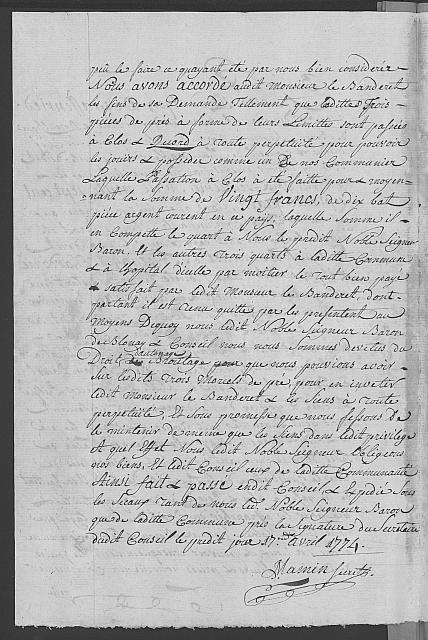 peu le faire ce quayant eté par nous bien considerér
Nous avons accordé audit monsieur le Banderet
les fins de sa Demande Tellement que ladittes Trois
piéces de prés à forme de leurs Limittes sont passés
à Clos & Record à toute perpetuité pour pouvoir
les jouir & posseder comme un de nos Communier
Laquelle Passation à Clos à eté faitte pour & moyen-
nant la Somme de Vingt francs, de dix bat
piéce argent courent en ce païs, laquelle Somme il
en Compette le quart à Nous le prédit Noble Seigneur
Baron, Et les autres Trois quarts à laditte Commune
& à lhopital dicelle par moitier le Tout bien payé
& satisfait par ledit Monsieur le Banderet, dont
partant il est tenu quitte par les presentent au
moyens Dequoy nous ledit Noble Seigneur Baron
de Blonay & Conseil nous nous Sommes devetus du
Droit que nous pouvions avoir
Sur lesdits Trois Morcels de pré, pour en invetir
ledit monsieur le Banderet & les Siens à toute
perpetuité, Et Sous promesse que nous fessons de
le mintenir de méme que les Siens dans ledit privilege
A quel Effet Nous ledit Noble Seigneur Obligeons
nos biens, Et ledit Conseil ceux de laditte Communauté
Ainsi fait & passé endit Conseil & Expedié Sous
les Sceaux tant de nous led. Noble Seigneur Baron
que de laditte Commune pris la Signature du Secretaire
dudit Conseil le predit jour 17me avril 1774.
Mamin Secret.